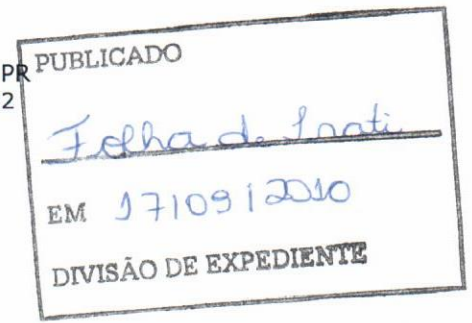 PR
2
PUBLICADO
Folha de Irati
EM 17/09/2010
DIVISÃO DE EXPEDIENTE